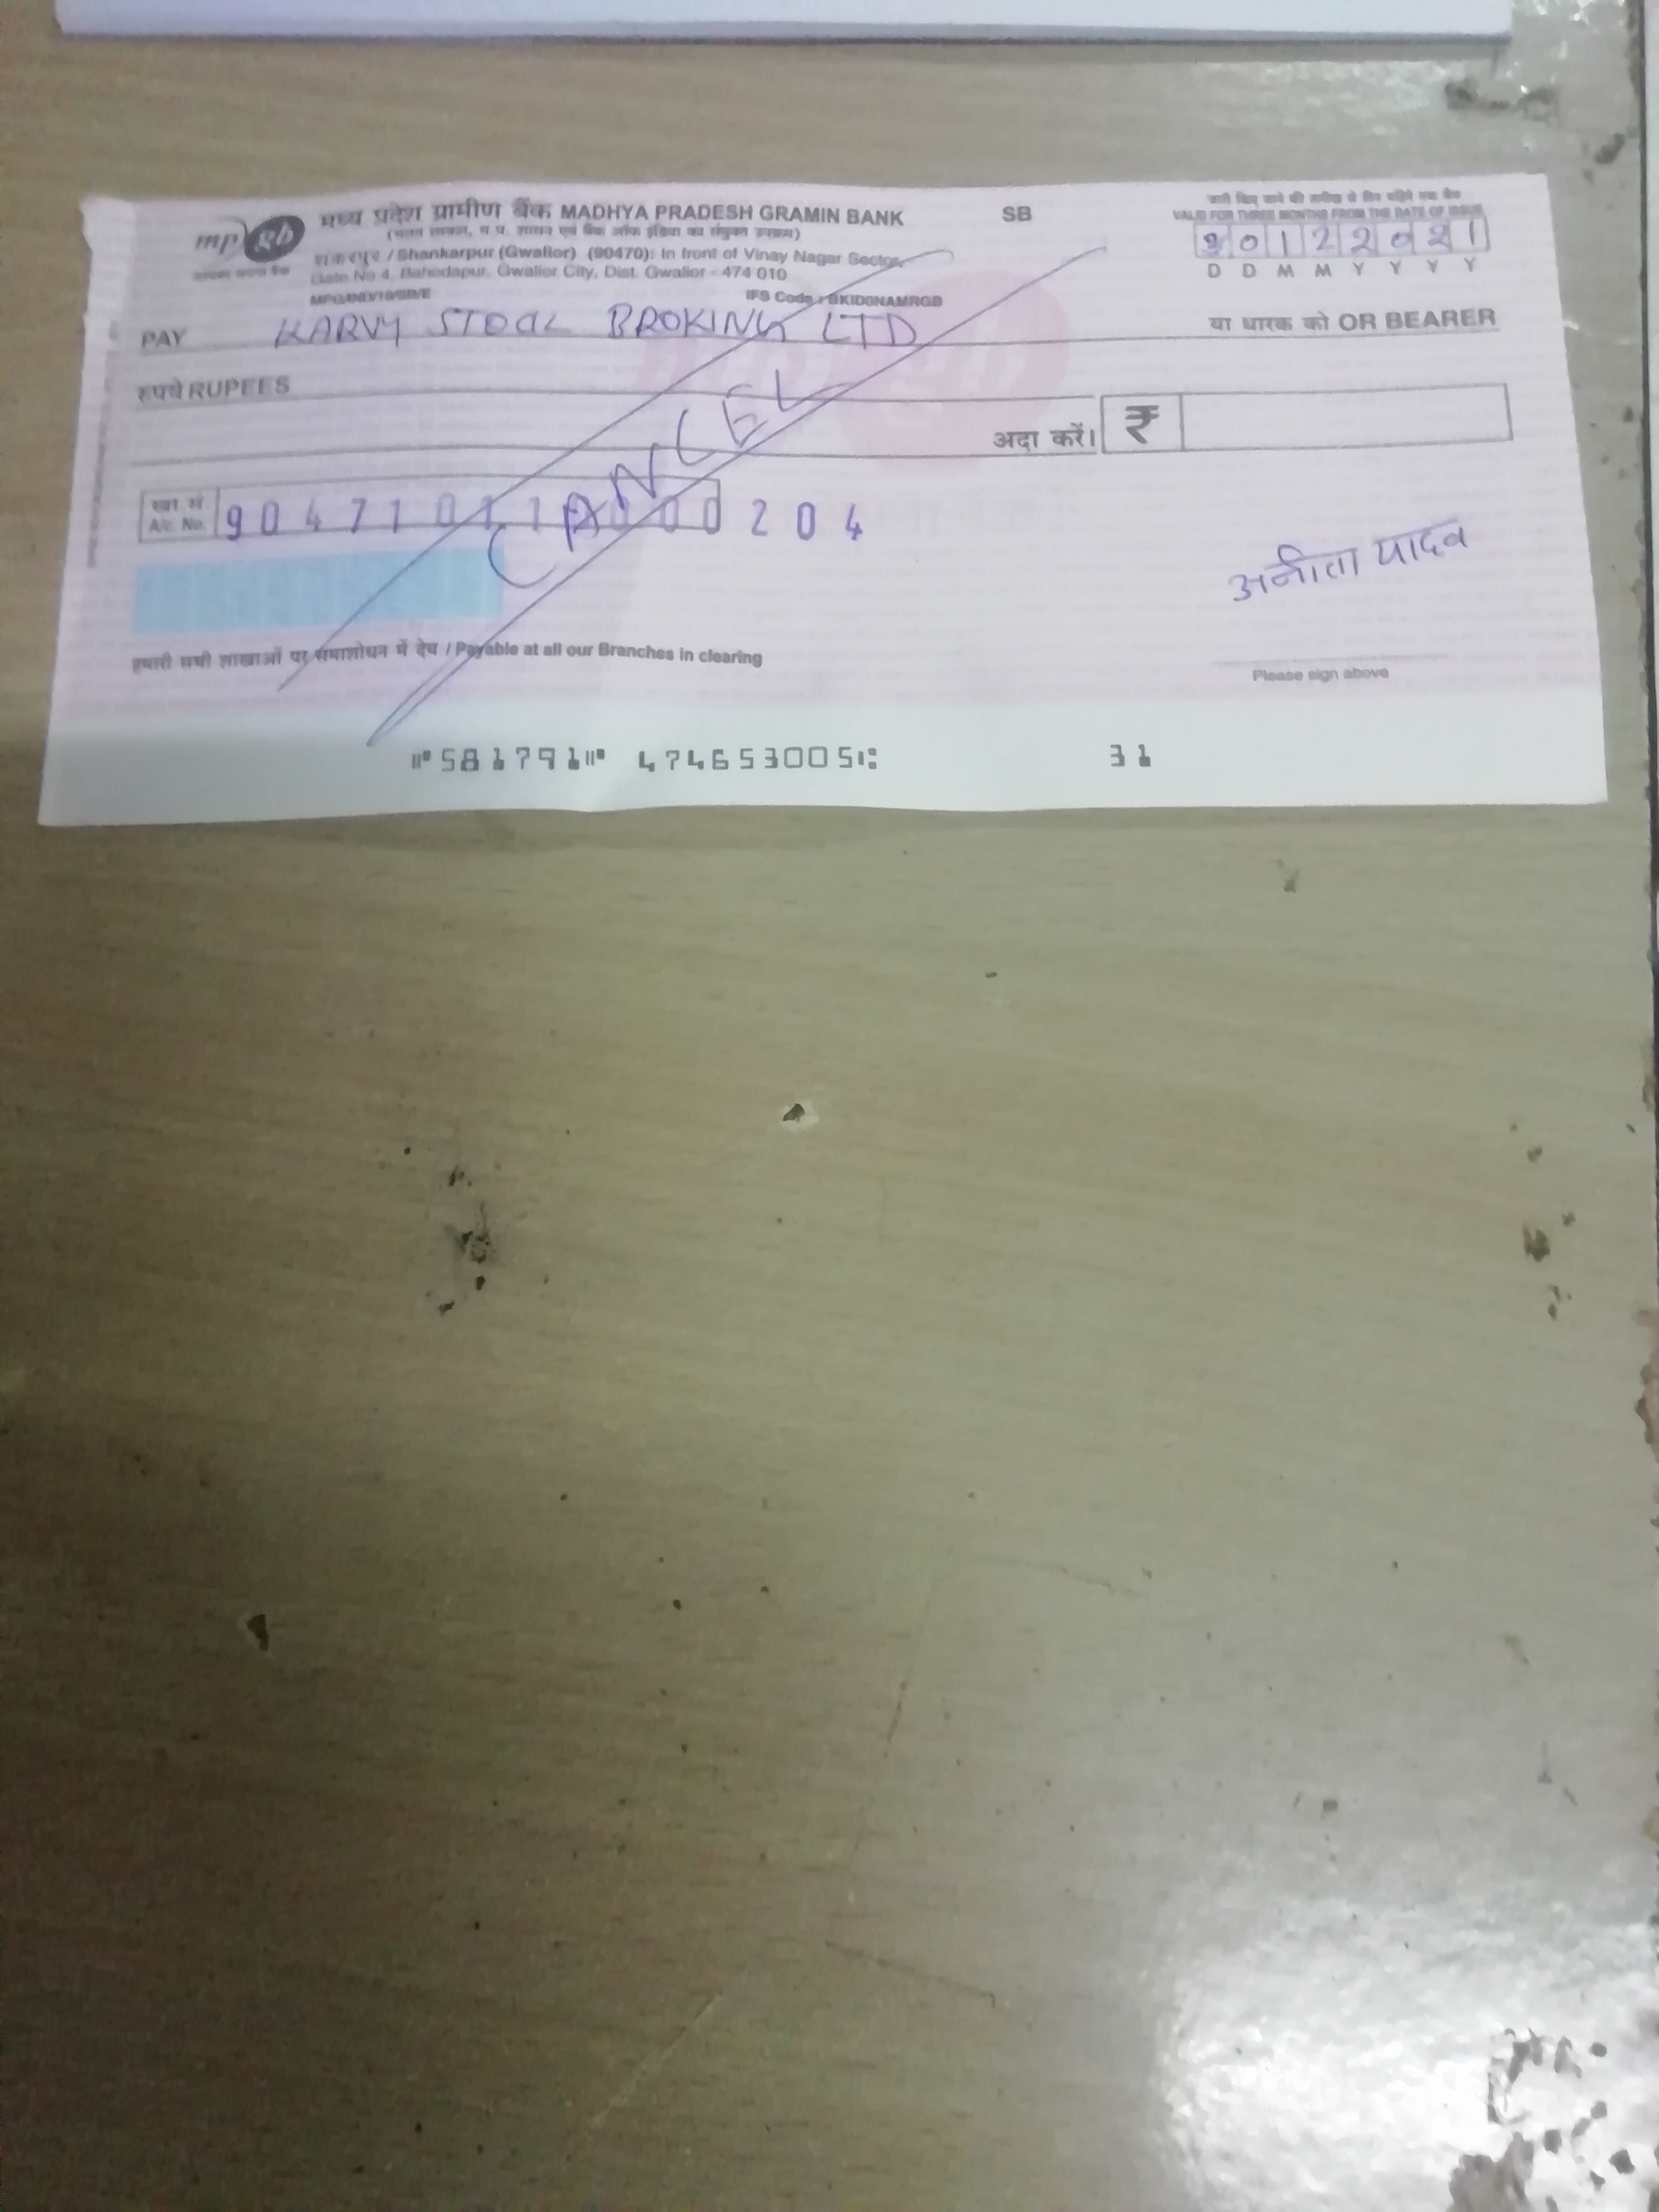 mpgb
मध्य प्रदेश ग्रामीण बैंक MADHYA PRADESH GRAMIN BANK SB
(भारत सरकार, म.प्र. शासन एवं बैंक ऑफ इंडिया का संयुक्त उपक्रम)
शंकरपुर / Shankarpur (Gwalior) (90470): In front of Vinay Nagar Sector,
Gate No 4, Bahodapur, Gwalior City, Dist. Gwalior - 474 010
IFS Code : BKID0NAMRGB
VALID FOR THREE MONTHS FROM THE DATE OF ISSUE
0 1 2 2 0 2 1
D D M M Y Y Y Y
PAY KARVY STOCK BROKING LTD या धारक को OR BEARER
रुपये RUPEES
अदा करें। ₹
CANCEL
खा. सं.
A/c. No. 9 0 4 7 1 0 1 1 0 0 0 0 2 0 4
अनीता यादव
हमारी सभी शाखाओं पर समाशोधन में देय / Payable at all our Branches in clearing
Please sign above
⑈581791⑈ 474653005⑆ 31